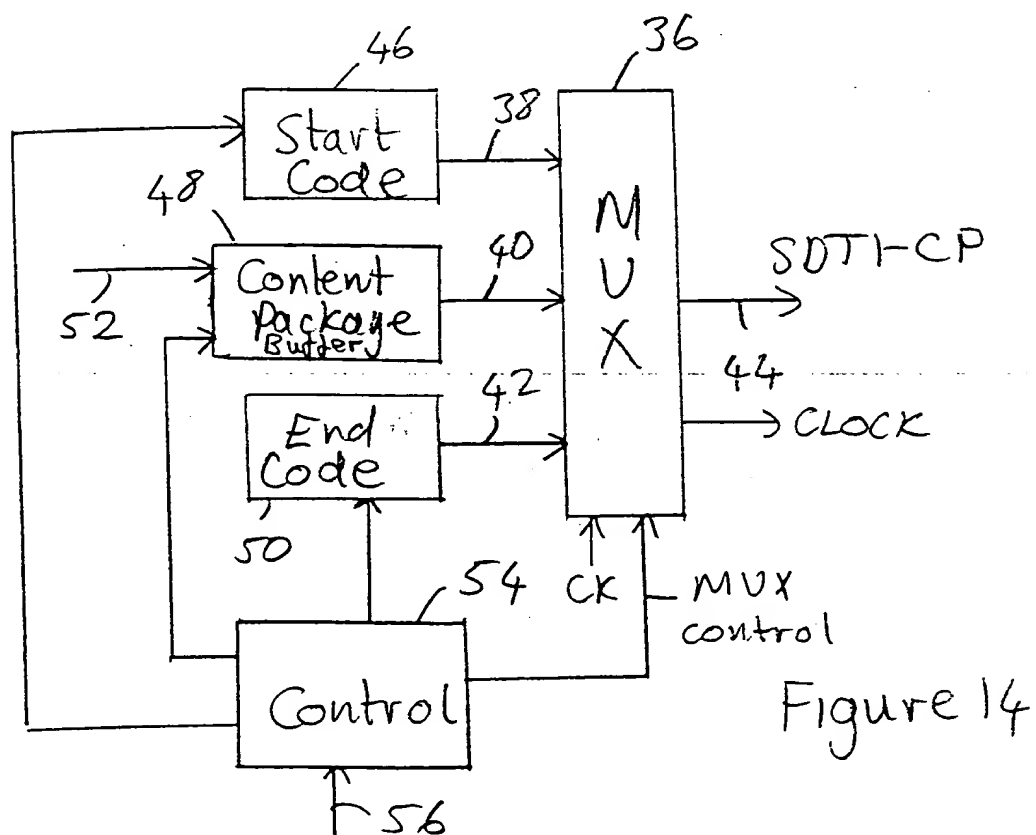 46
36
Start
Code
38
48
M
U
X
Content
Package
Buffer
40
52
SDTI-CP
44
42
End
Code
CLOCK
50
54
CK
MUX
control
Control
Figure 14
56